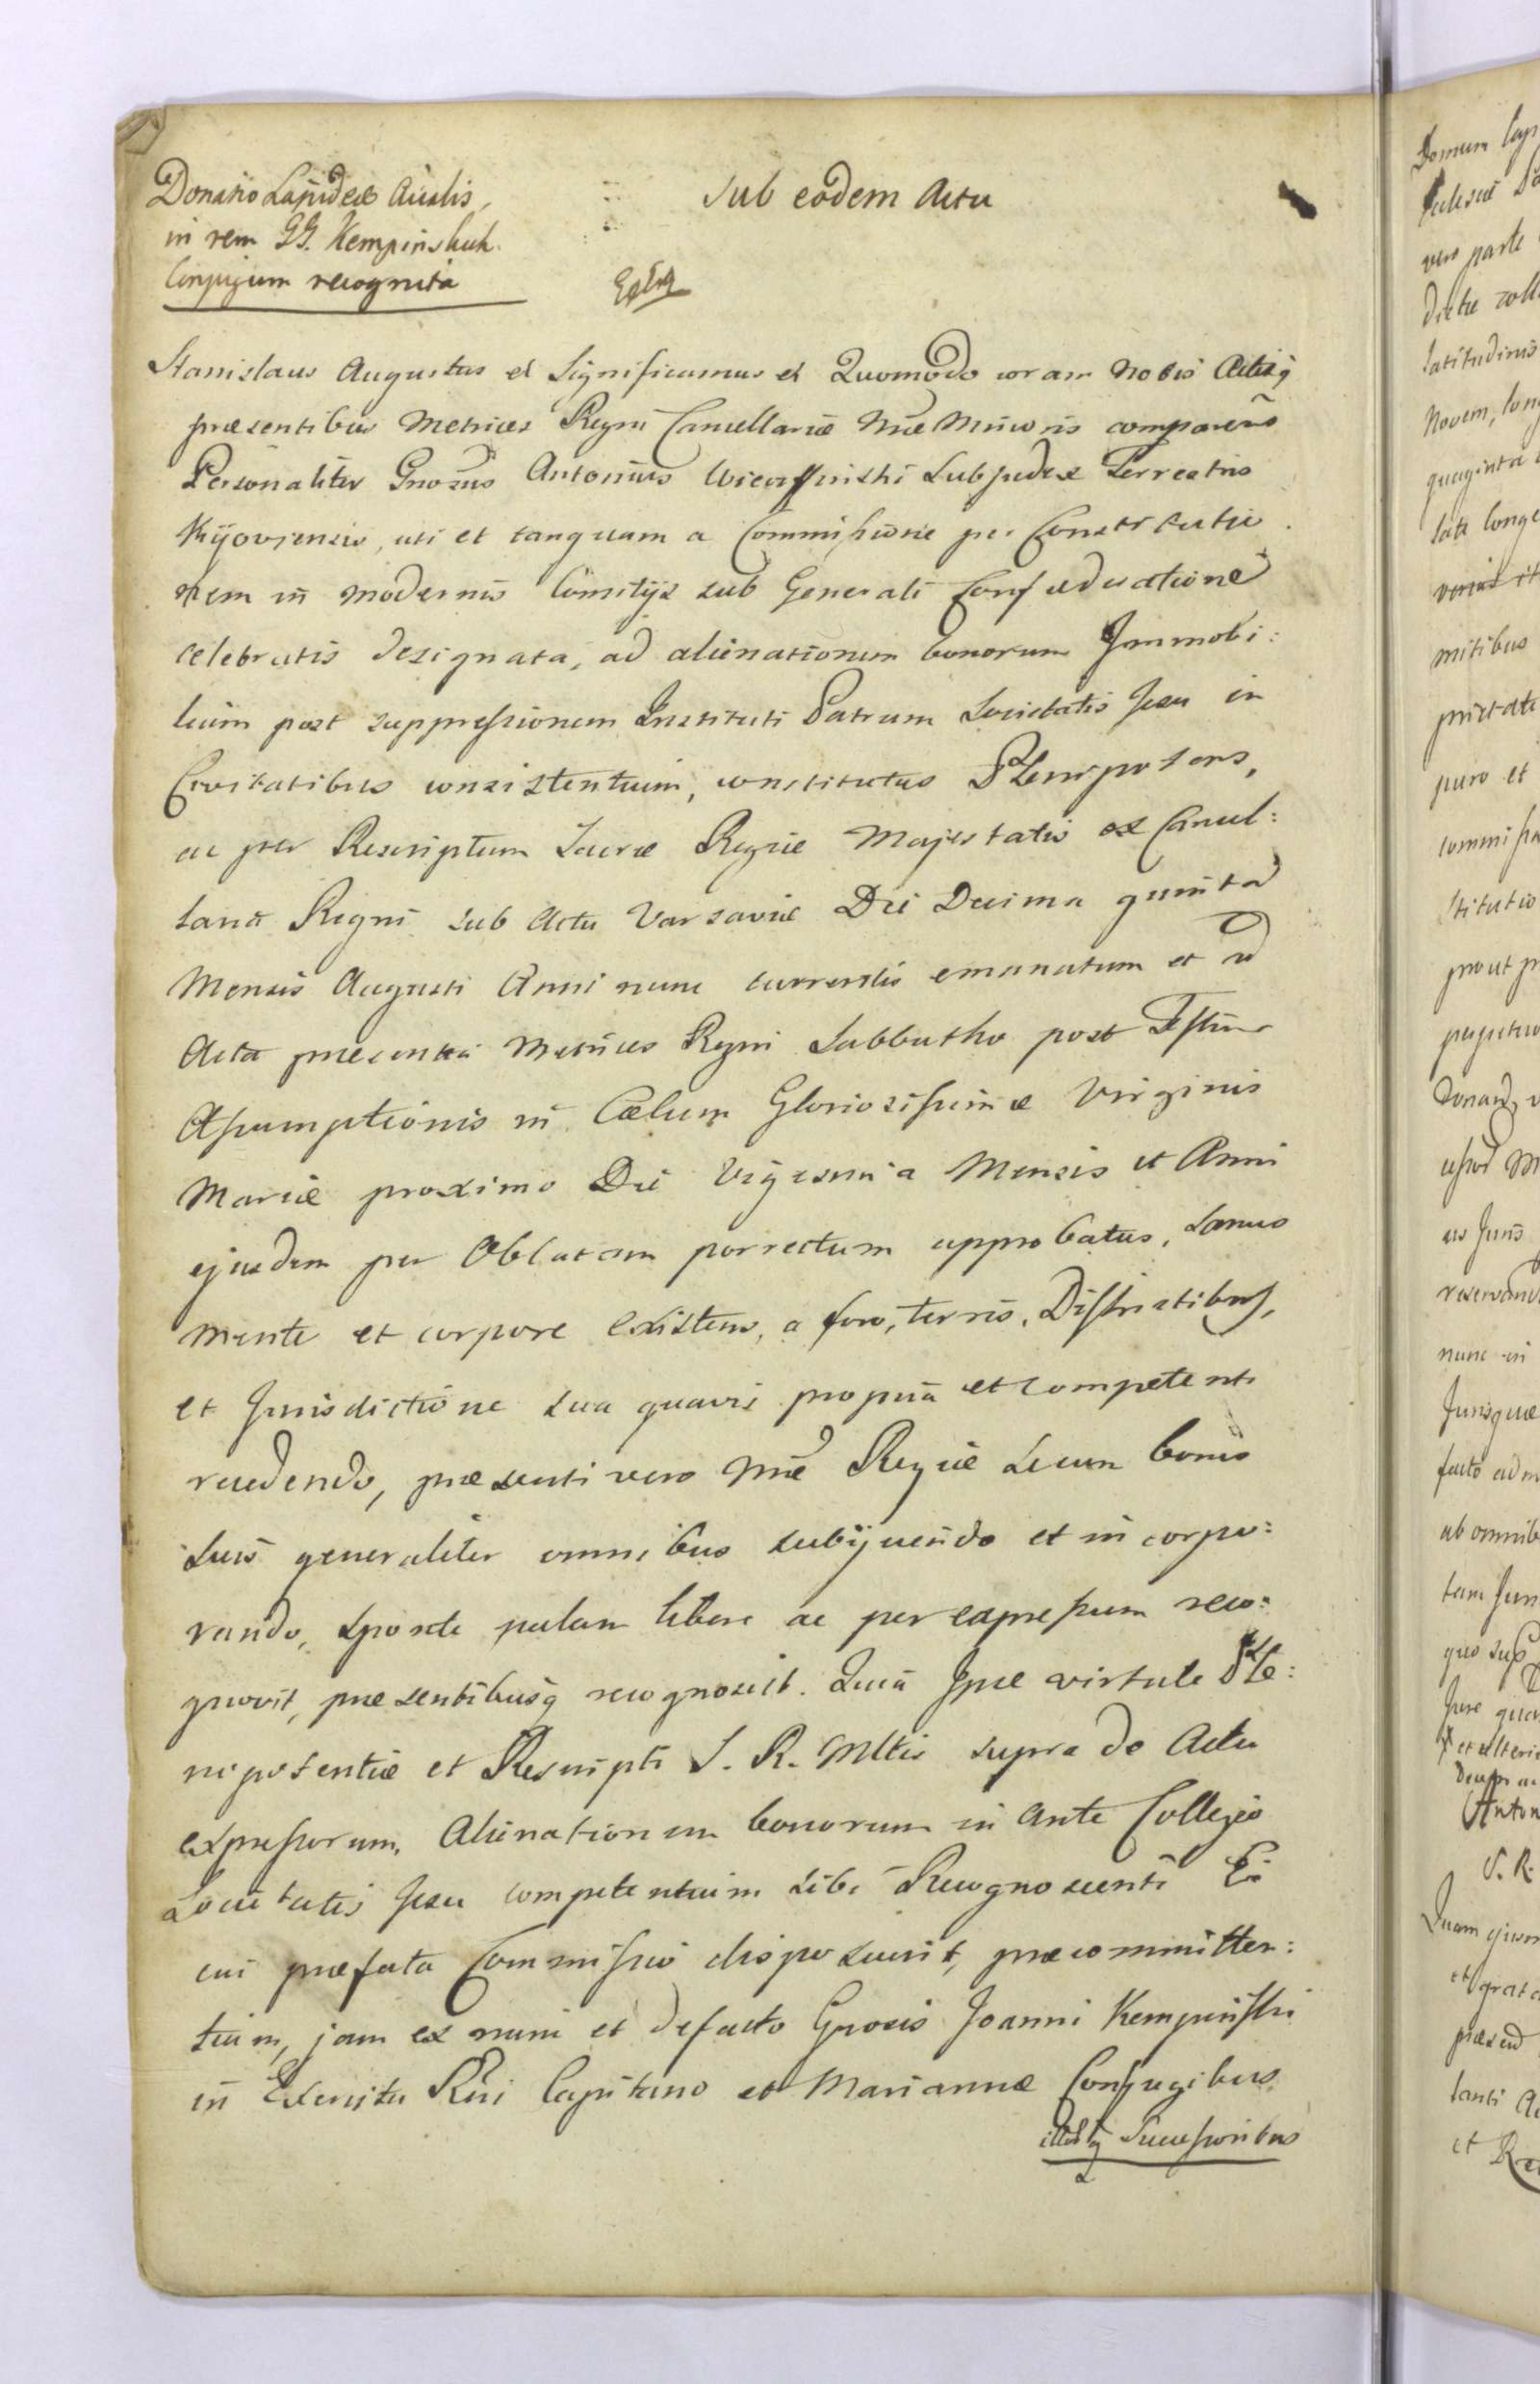 Donatio Lapideæ Aualis,
in rem GG. Kempinskich
Conjugum recognita
Sub eodem Actu
Stanislaus Augustus et Significamus et Quomodo coram Nobis Actisq
præsentibus Metrices Regni Cancellariæ Nræ Minoris comparens
Personaliter Gnosus Antonius Subjudex Terrestris
Kijoviensis, uti et tanquam a Commissione per Constitutio
nem in modernis Comitijs sub Generali Confæderatione
celebratis designata, ad alienationem bonorum Immobi:
lium post suppressionem Instituti Patrum Societatis Jesu in
Civitatibus consistentium, constitutus Plenipotens,
ac per Rescriptum Sacræ Regiæ Majestatis ex Cancel:
laria Regni sub Actu Varsaviæ Die Decima quinta
Mensis Augusti Anni nunc currentis emanatum et ad
Acta præsentia Metrices Regni Sabbatho post Festum
Assumptionis in Cælum Gloriosissimæ Virginis
Mariæ proximo Die Vigesima Mensis et Anni
ejusdem per Oblatam porrectum approbatus, Sanus
mente et corpore existens, a foro, terris, Districtibus,
et Jurisdictione sua quavis propria et competenti
recedendo, præsenti vero Nræ Regiæ secum bonis
suis generaliter omnibus subijciendo et incorpo:
rando, sponte palam libere ac per expressum reco:
gnovit, præsentibusq recognoscit. Quia Ipse virtute Ple:
nipotentiæ et Rescripti S. R. Mttis supra de Actu
expressorum, Alienationem bonorum in ante Collegio
Societatis Jesu competentium sibi Recognoscenti E:
cui præfata Commissio disposuerit, præcommitten:
tium, jam ex nunc et defacto Gnosis Joanni Kempinski
in Exercitu Rni Capitano et Mariannæ Conjugibus
illorq Successoribus